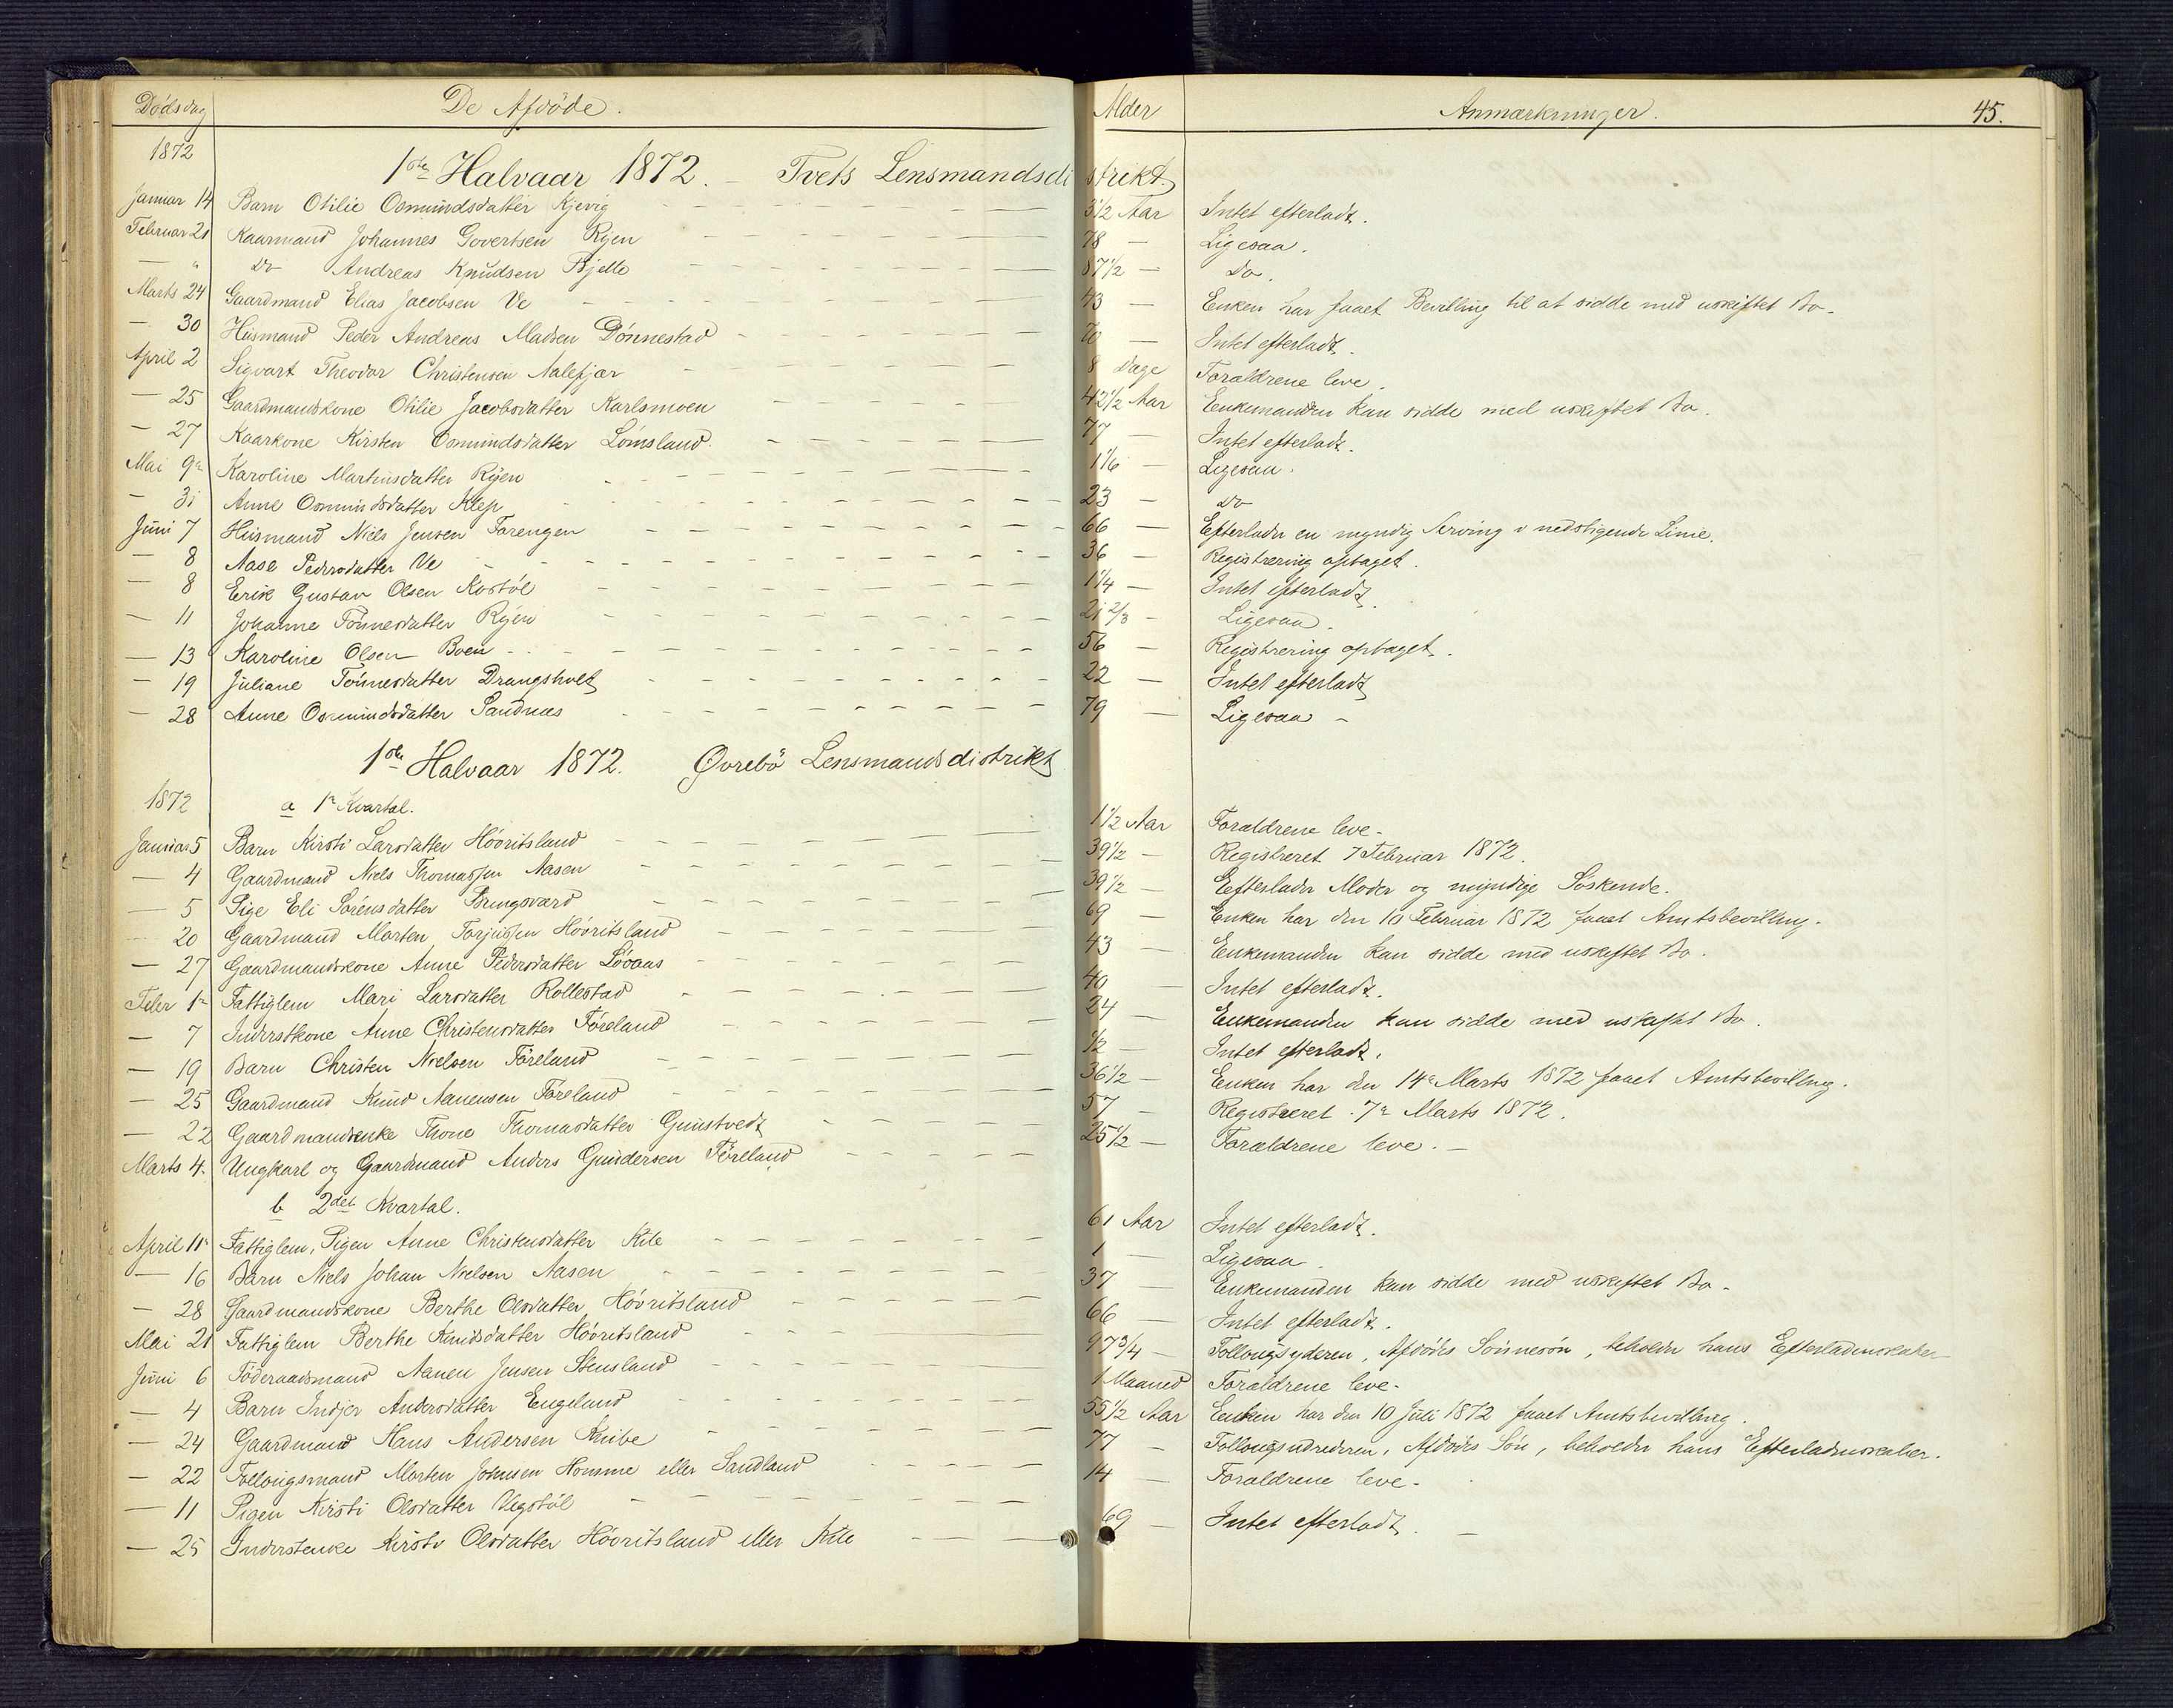 Dödsdag De Afdöde. Alder Anmærkninger. 45.
1872
1ste Halvaar 1872. – Tvets Lensmandsdistrikt.
Januar 14 Barn Otilie Osmundsdatter Kjevig 3 1/2 Aar Intet efterladt.
Februar 21 Kaarmand Johannes Govertsen Ryen 78 — Ligesaa.
— " do Andreas Knudsen Bjelle 87 1/2 — Do.
Marts 24 Gaardmand Elias Jacobsen Ve 43 — Enken har faaet Bevilling til at sidde med uskiftet Bo.
— 30 Husmand Peder Andreas Madsen Dönnestad 70 — Intet efterladt.
April 2 Sigvart Theodor Christensen Aalefjær 8 Dage Forældrene leve.
— 25 Gaardmandskone Otilie Jacobsdatter Karlsmoen 42 1/2 Aar Enkemanden kan sidde med uskiftet Bo.
— 27 Kaarkone Kirsten Osmundsdatter Lömsland 77 Intet efterladt.
Mai 9de Karoline Martinsdatter Ryen 1 1/6 — Ligesaa.
— 31 Anne Osmundsdatter Klep 23 — do
Juni 7 Husmand Niels Jensen Forengen 66 — Efterlader en myndig Arving i nedstigende Linie.
— 8 Aase Pedersdatter Ve 36 — Registrering optaget.
— 8 Erik Gustav Olsen Kostöl 1 1/4 — Intet efterladt.
— 11 Johanne Tönnesdatter Ryen 21 2/3 — Ligesaa.
— 13 Karoline Olsen Boen 56 — Registrering optaget.
— 19 Juliane Tönnesdatter Drangsholt 22 — Intet efterladt
— 28 Anne Osmundsdatter Sandnes 79 — Ligesaa –
1ste Halvaar 1872. Övrebö Lensmandsdistrikt
1872 a 1ste Kvartal.
Januar 5 Barn Kirsti Larsdatter Hövritsland 1 1/2 Aar Forældrene leve.
— 4 Gaardmand Niels Thomassen Aasen 39 1/2 — Registreret 7 Februar 1872.
— 5 Pige Eli Sörensdatter Bringsværd 39 1/2 — Efterlader Moder og myndige Söskende.
— 20 Gaardmand Morten Torjussen Hövritsland 69 — Enken har den 10 Februar 1872 faaet Amtsbevilling.
— 27 Gaardmandskone Anne Pedersdatter Lövaas 43 — Enkemanden kan sidde med uskiftet Bo.
Febr 1ste Fattiglem Mari Larsdatter Rollestad 40 — Intet efterladt.
— 7 Inderstkone Anne Christensdatter Föreland 24 — Enkemanden kan sidde med uskiftet Bo.
— 19 Barn Christen Nielsen Föreland 1/2 — Intet efterladt.
— 25 Gaardmand Knud Aanensen Föreland 36 1/2 — Enken har den 14de Marts 1872 faaet Amtsbevilling.
— 22 Gaardmandsenke Thone Thomasdatter Gunstvedt 57 — Registreret 7de Marts 1872.
Marts 4. Ungkarl og Gaardmand Anders Gundersen Föreland 25 1/2 — Forældrene leve. –
b 2det Kvartal.
April 11 Fattiglem, Pigen Anne Christensdatter Kile 61 Aar Intet efterladt.
— 16 Barn Niels Johan Nielsen Aasen 1 — Ligesaa.
— 28 Gaardmandskone Berthe Olsdatter Hövritsland 37 — Enkemanden kan sidde med uskiftet Bo.
Mai 21 Fattiglem Berthe Knudsdatter Hövritsland 66 — Intet efterladt.
Juni 6 Föderaadsmand Aanen Jensen Stensland 97 3/4 — Follougsyderen, Afdödes Sönnesön, beholder hans Efterladenskaber
— 4 Barn Indjer Andersdatter Engeland 1 Maaned Forældrene leve.
— 24 Gaardmand Hans Andersen Knibe 55 1/2 Aar Enken har den 10 Juli 1872 faaet Amtsbevilling.
— 22 Follougsmand Morten Johnsen Homme eller Sandland 77 — Follougsudrederen, Afdödes Sön, beholder hans Efterladenskaber.
— 11 Pigen Kirsti Olsdatter Vigstöl 14 — Forældrene leve.
— 25 Inderstenke Kirsti Olsdatter Hövritsland eller Kile 69 — Intet efterladt. –